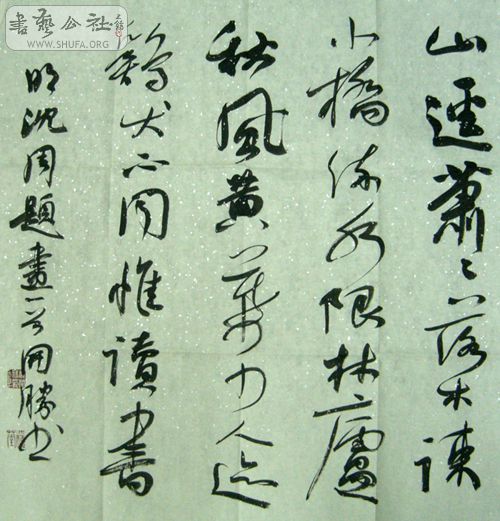 書藝公社
WWW.SHUFA.ORG
山逕蕭〻落木踈
小橋流水限林廬
秋風黄葉少人迹
鷄犬不聞惟讀書
明沈周題畫一首開勝书